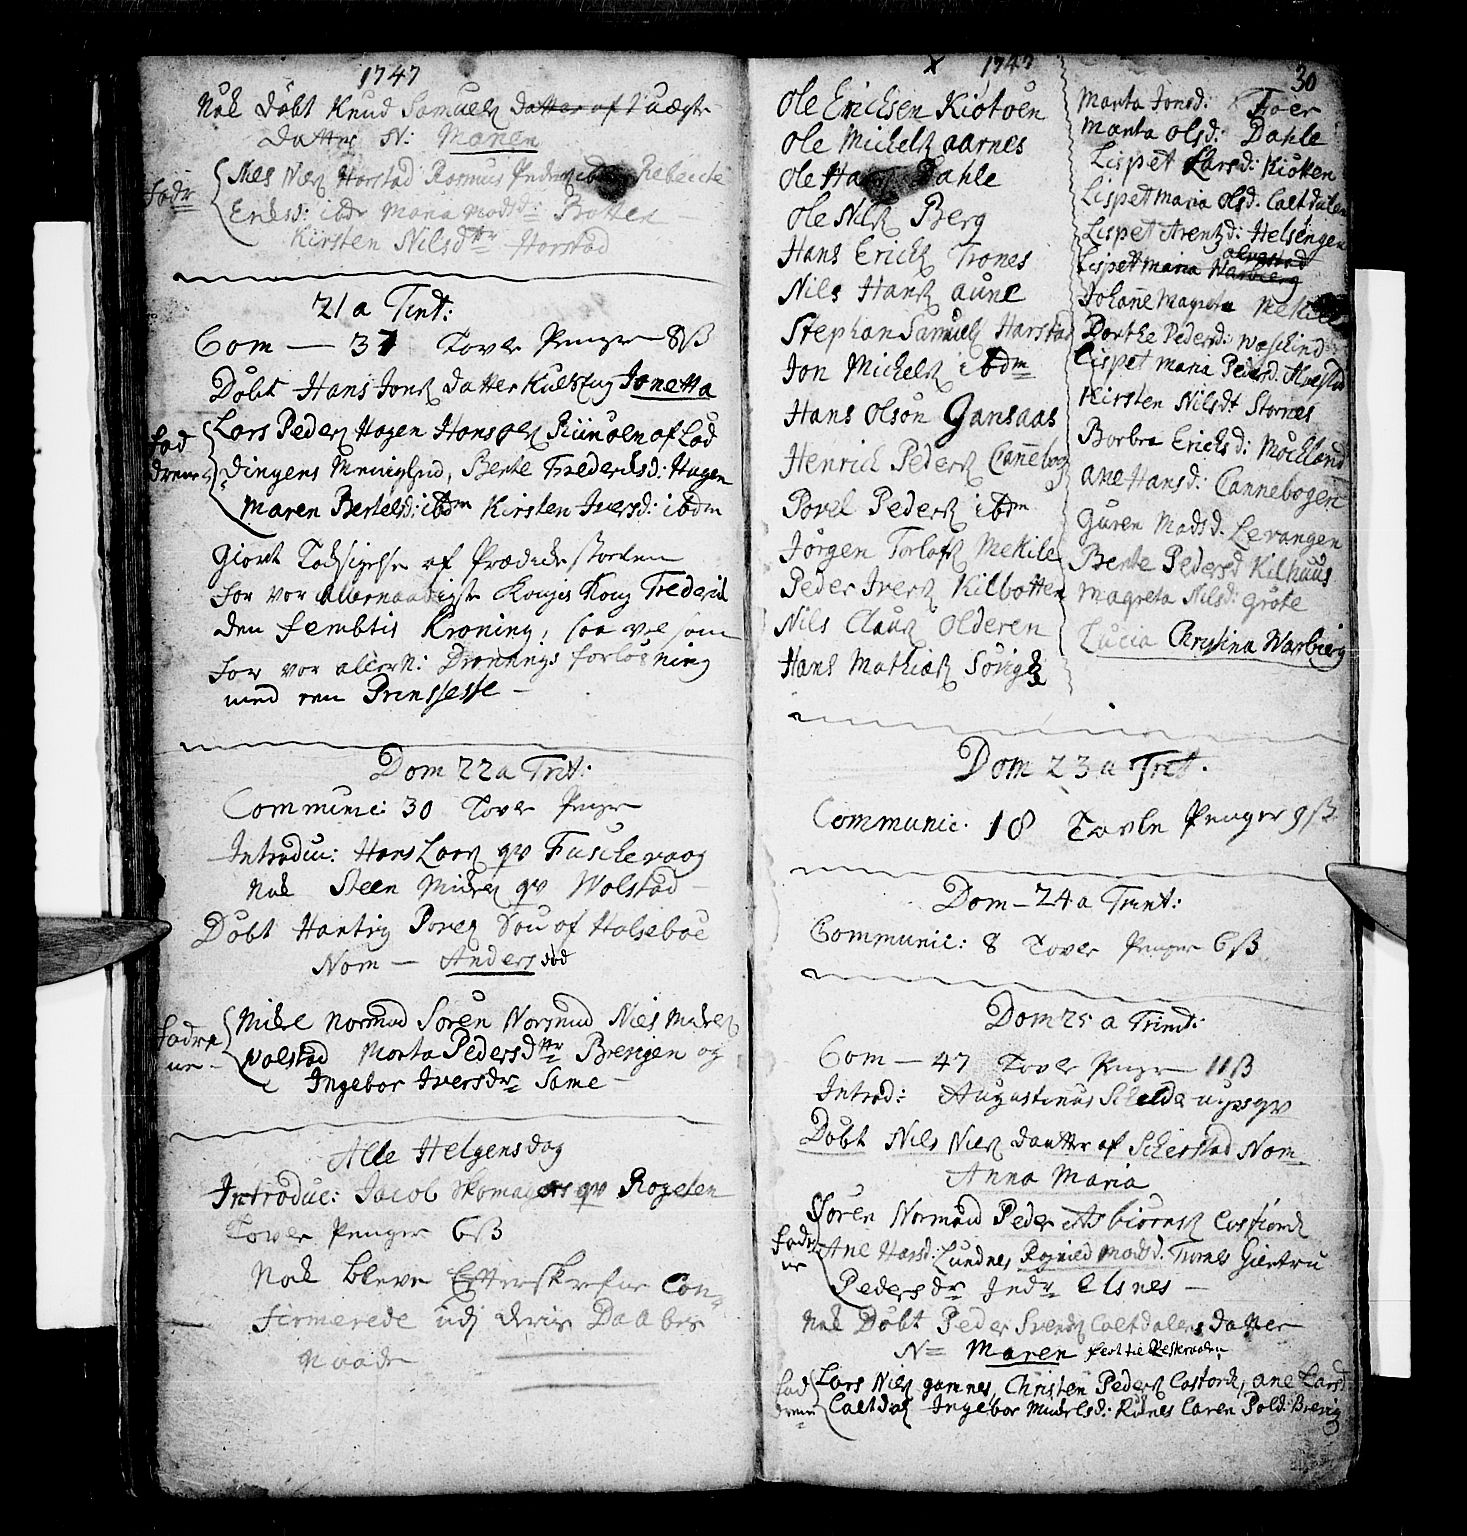 1747
Nok Döbt Knud Samuels datter af uægte
Datter N: Maren
fadr Nils Niels Harstad Rasmus Peders ibdm Rebecke
Ericsd: ibdr Maria Madsd: Botten
Kirsten Nilsdttr Harstad
21 a Trit:
Com — 37 Tovle Penger 8ß
Döbt Hans Jons datter Kulstug Jonetta
fad Lars Peders Hagen Hans Ols af Lod
drene dingens Menighed, Berte Frederiksd: Hagen
Maren Bertelsd: ibdm Kirsten Iversd: ibdm
Giort Tacksigelse af Prædickestoelen
for vor allernaadigste Kongis Kong Frederik
den fembtis Kroning, saa vel som
for vor allern: Dronnings forlösning
med een Prinssesse
Dom 22 a Trit:
Communic: 30 Tovle Penger
Introduc: Hans Lars qv Fuschevaag
Nok Steen Mickels qv Wolstad
Döbt Hartvig Povels Sön af Halseboe
Nom — Anders död
fadre Mickel Normand Sören Normand Niels Mickels
ne Wolstad Marta Pedersdttr Brevigen og
Ingebor Iversdr Same
Alle Helgensdag
Introduc: Jacob Skomagers qv Rogelen
Tovle Penger 6ß
Nok bleve Efterskrefne Con-
firmerede udj deris Daabes
Naade
X 1747 30
Ole Ericksen Kiötöen
Ole Michels Aarnes
Ole Hans Dahle
Ole Nils Berg
Hans Ericks Trones
Nils Hans Aune
Stephan Samuels Harstad
Jon Michels ibdm
Hans Olsön Gansaas
Henrich Peders Cannebog
Povel Peders ibdm
Jörgen Torlofs Mekile
Peder Ivers Kilbotten
Nils Claus Olderen
Hans Mathias Sörvig
Marta Jonsd: Froer
Marta Olsd: Dahle
Lispet Larsd: Kiötten
Lispet Maria Olsd: Caltdalen
Lispet Arentzd: Helsengen
Lispet Maria Warbierg
Johanne Magreta Mekile
Dorthe Pedersd:
Lispet Maria Pedersd:
Kirsten Nilsdt Stornes
Borbra Ericksd: Möckland
Ane Hansd: Cannebogen
Guren Madsd: Levangen
Berte Pedersd Kilhuus
Magreta Nilsd: Gröte
Lucia Christina Warbierg
Dom 23 a Trit.
Communic: 18 Tovle Penger 9ß
Dom — 24 a Trint:
Communic: 8 Tovle Penger 6ß
Dom 25 a Trinit:
Com — 47 Tovle Penger 11ß
Introd: Augustinus Schelderups qv
Döbt Nils Niels daatter af Scherstad Nom-
Anna Maria
Sören Normand Peder Asbiörns Costfiord
fadre Ane Hansd: Lundnes Rognild Madsd. Tuvnes Giertru
ne Pedersdr Indr Elsnes
Nok Döbt Peder Svends Caltdalens datter
N= Maren
fad Lars Niels Gamnes, Christen Peders Costord, Ane Larsd
drene Caltdal Ingebor Mickelsd: Renes Caren Polsd: Brevig